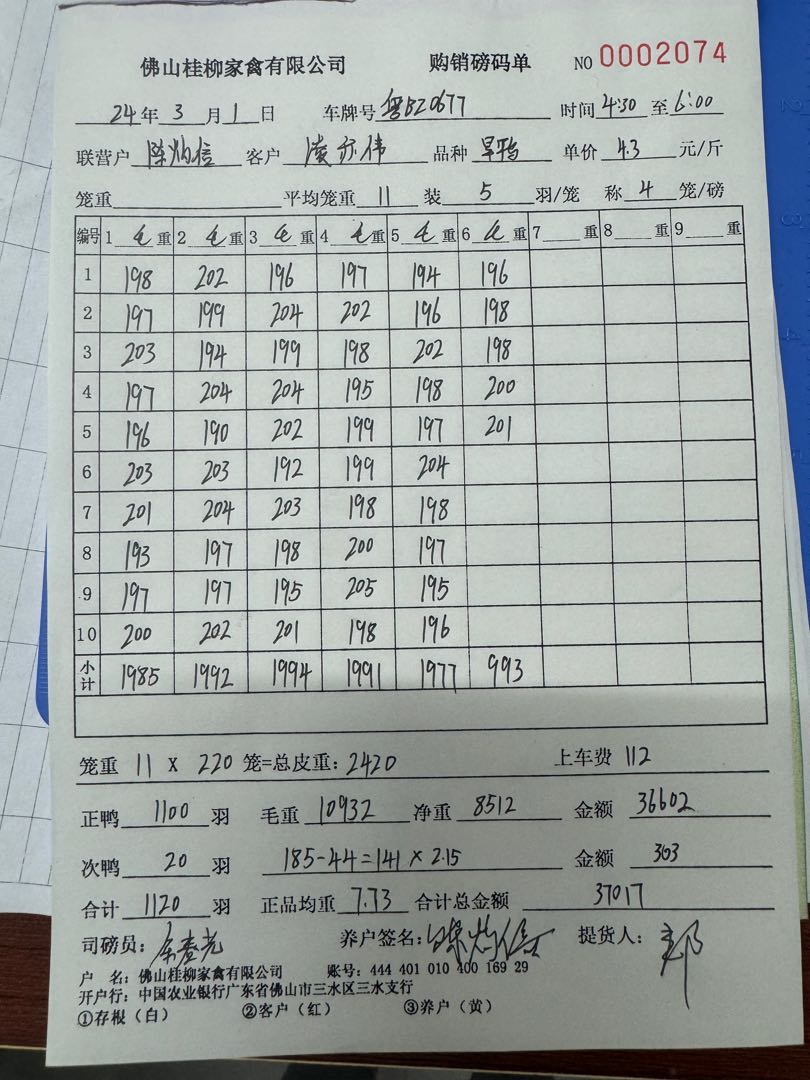 佛山桂柳家禽有限公司 购销磅码单 NO 0002074
24年3月1日 车牌号 粤BZ0677 时间 4:30 至 6:00
联营户 陈灿信 客户 凌亦伟 品种 旱鸭 单价 4.3 元/斤
笼重 平均笼重 11 装 5 羽/笼 称 4 笼/磅
编号 1 毛重 2 毛重 3 毛重 4 毛重 5 毛重 6 毛重 7 重 8 重 9 重
1 198 202 196 197 194 196
2 197 199 204 202 196 198
3 203 194 199 198 202 198
4 197 204 204 195 198 200
5 196 190 202 199 197 201
6 203 203 192 199 204
7 201 204 203 198 198
8 193 197 198 200 197
9 197 197 195 205 195
10 200 202 201 198 196
小计 1985 1992 1994 1991 1977 993
笼重 11 X 220 笼=总皮重: 2420 上车费 112
正鸭 1100 羽 毛重 10932 净重 8512 金额 36602
次鸭 20 羽 185-44=141×2.15 金额 303
合计 1120 羽 正品均重 7.73 合计总金额 37017
司磅员: 养户签名: 陈灿信 提货人: 郑
户 名: 佛山桂柳家禽有限公司 账号: 444 401 010 400 169 29
开户行: 中国农业银行广东省佛山市三水区三水支行
①存根（白） ②客户（红） ③养户（黄）